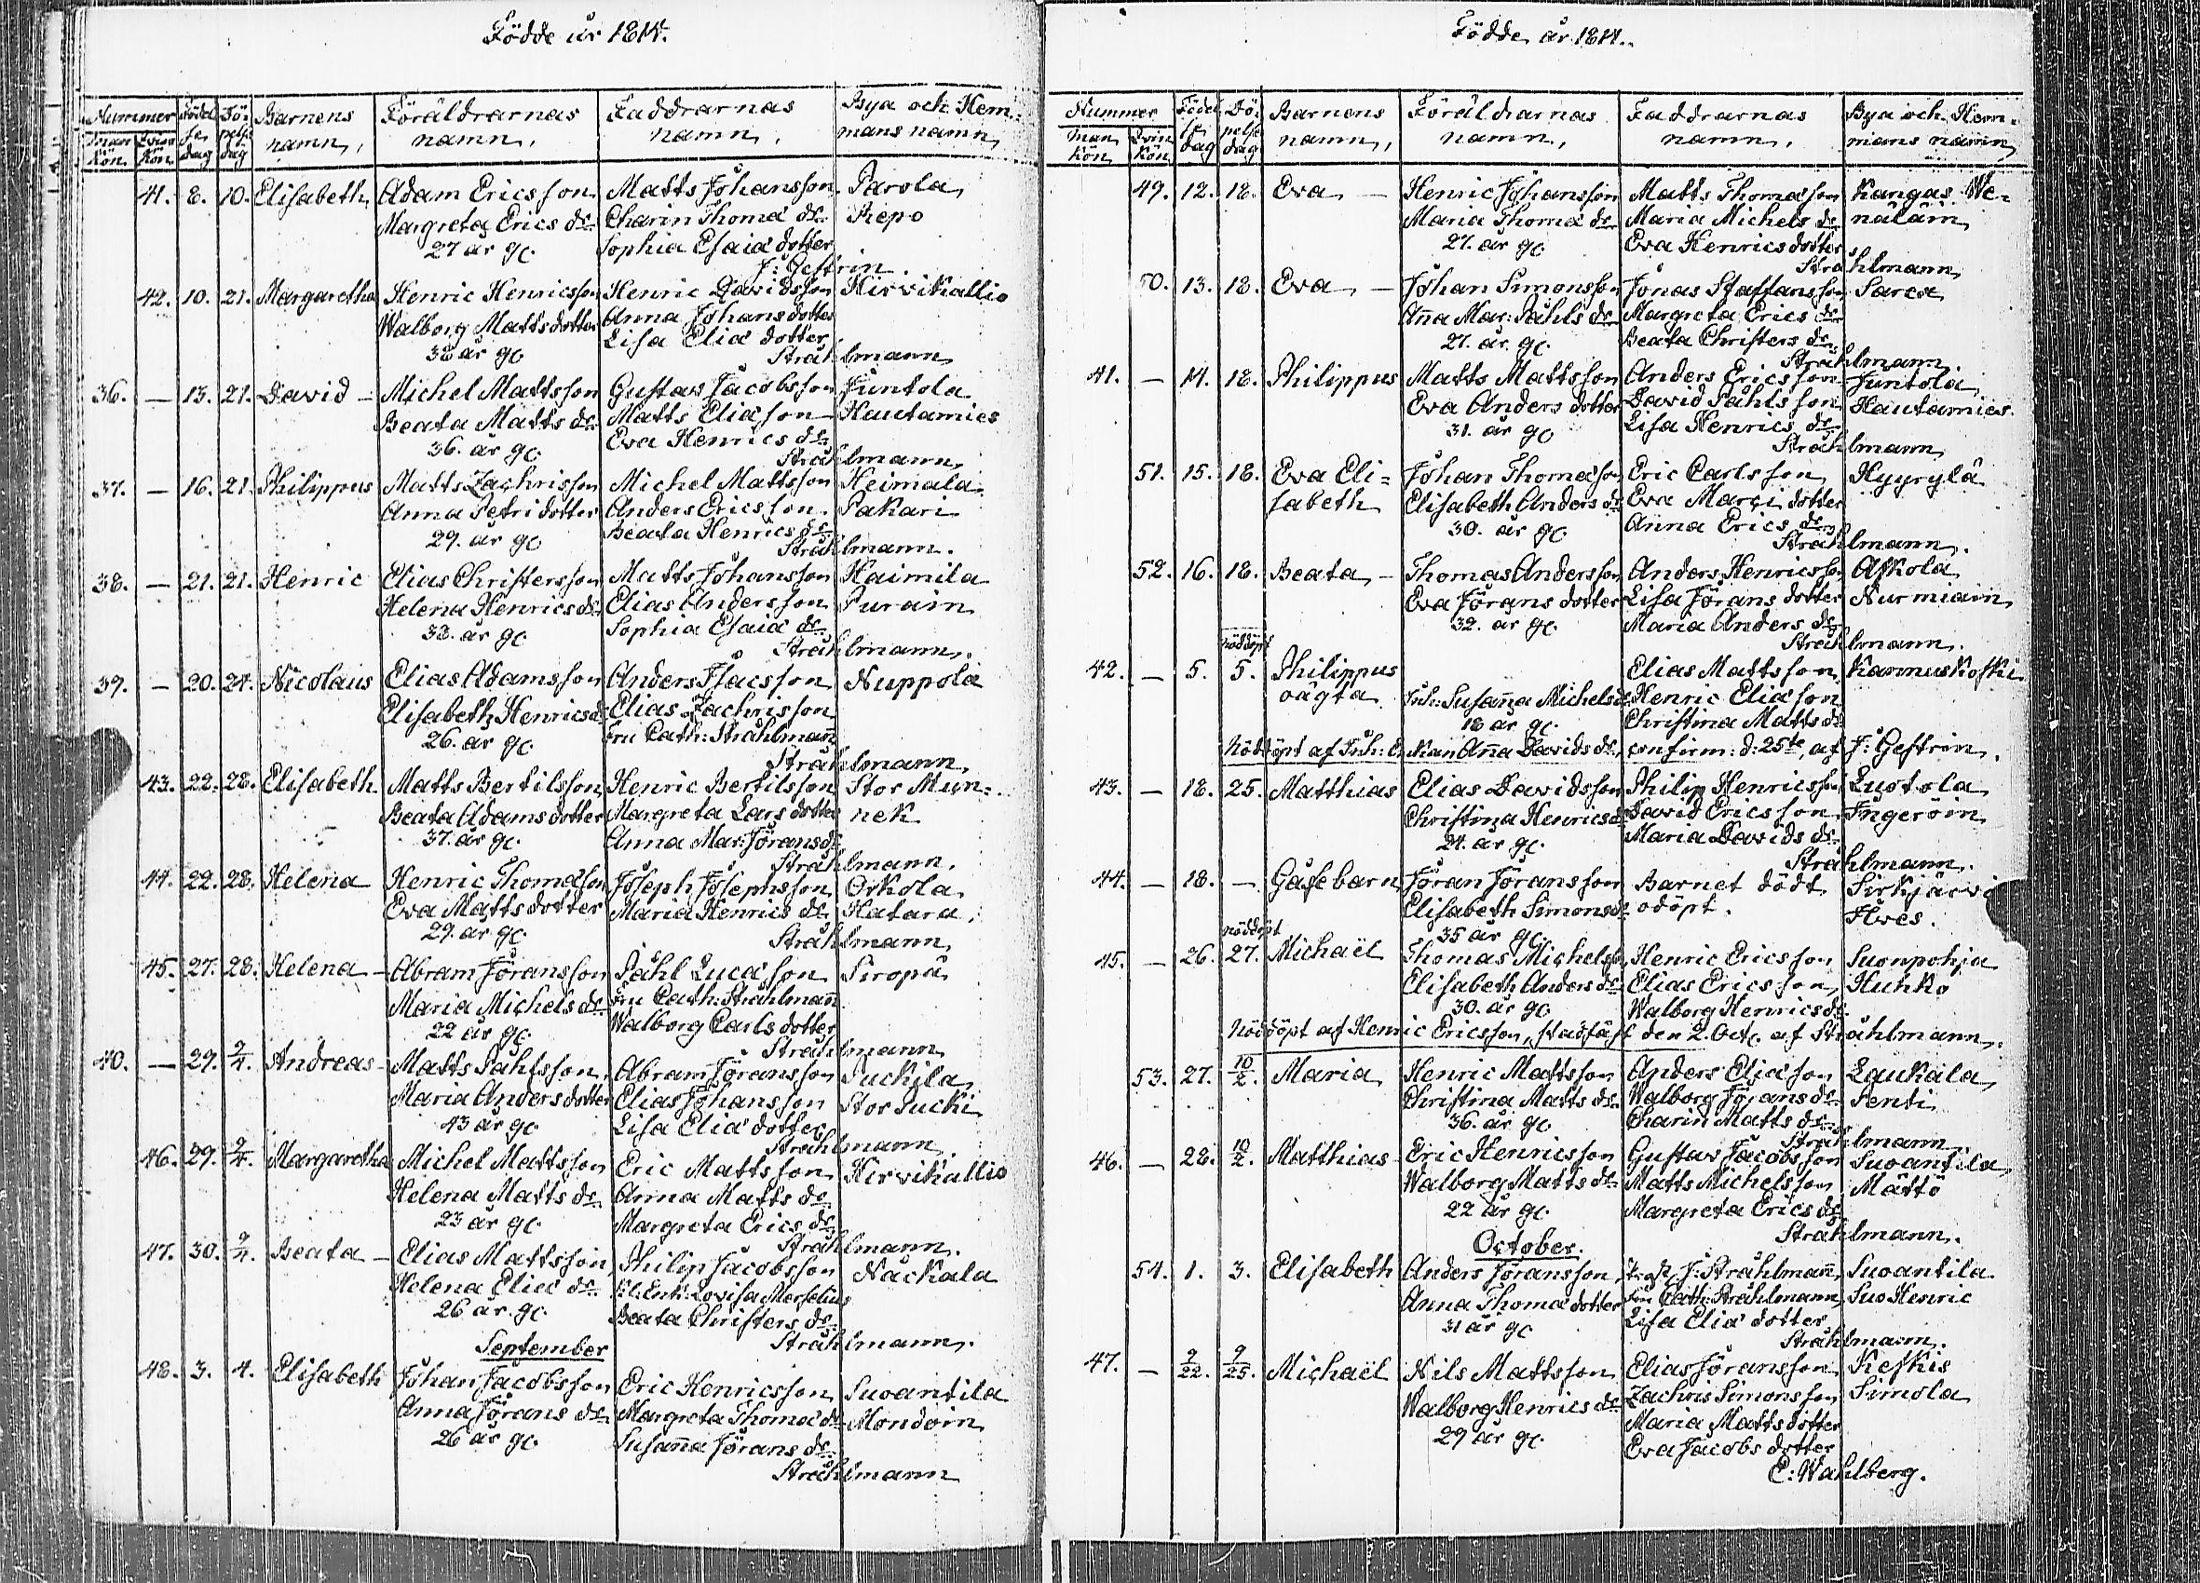 Födde år 1814.
Nummer Födel Dö- Barnens Föräldrarnas Faddrarnas Bya och Hem-
man Kön Qvin Kön se dag pelse dag namn, namn, namn, mans namn,
41. 8. 10. Elisabeth Adam Ericsson Matts Johansson Parola
Margreta Erics dr Charin Thomæ dr Repo
27 år g. Sophia Esaiæ dotter
J: Gestrin
42. 10. 21. Margaretha Henric Henricsson Henric Davidsson Hirvikallio
Walborg Matts dotter Anna Johans dotter
38 år g. Lisa Eliæ dotter
Stråhlmann
36. — 13. 21. David — Michel Mattsson Gustav Jacobsson Juntola
Beata Matts dr Matts Eliæson Hautamies
36. år g. Eva Henrics dr
Stråhlmann
37. — 16. 21. Philippus Matts Zachrisson Michel Mattsson Heimala
Anna Petri dotter Anders Ericsson Pakari
29. år g. Beata Henrics dr
Stråhlmann.
38. — 21. 21. Henric Elias Christersson Matts Johansson Haimila
Helena Henrics dr Elias Andersson Purain
38. år g. Sophia Esaiæ dr
Stråhlmann.
39. — 20. 24. Nicolaus Elias Adamsson Anders Isacsson Nuppola
Elisabeth Henrics d. Elias Zachrisson
26. år g. Fru Cath: Stråhlman
Stråhlmann.
43. 22. 28. Elisabeth Matts Bertilsson Henric Bertilsson Stor Mun-
Beata Adams dotter Margreta Lars dotter nek
37. år g. Anna Mar: Jörans dr
Stråhlmann.
44. 22. 28. Helena Henric Thomæson Joseph Josephsson Orkola
Eva Matts dotter Maria Henrics dr Hatara,
29. år g. Stråhlmann,
45. 27. 28. Helena — Abram Jöransson Påhl Lucæson Siropä
Maria Michels dr Fru Cath: Stråhlman
22 år g. Walborg Carls dotter
Stråhlmann
40. — 29. 9/4. Andreas — Matts Påhlsson Abram Jöransson Puckila
Maria Anders dotter Elias Johansson Stor Pucki
43 år g. Lisa Eliæ dotter
Stråhlmann
46. 29. 9/4. Margaretha Michel Mattsson Eric Mattsson Hirvikallio
Helena Matts dr Anna Matts dr
23 år g. Margreta Erics dr
Stråhlmann.
47. 30. 9/4. Beata — Elias Mattsson Philip Jacobsson Näckala
Helena Eliæ dr Lovisa
26 år g. Beata Christers dr
Stråhlmann.
September
48. 3. 4. Elisabeth Johan Jacobsson Eric Henricsson Suoantila
Anna Jörans dr Margreta Thomæ dr Mondoin
26 år g. Susaña Jörans dr
Stråhlmann
Födde år 1814.
Nummer Födel Dö- Barnens Föräldrarnas Faddrarnas Bya och Hem-
man Kön Qvin Kön se dag pelse dag namn, namn, namn, mans namn,
49. 12. 18. Eva — Henric Johansson Matts Thomæson Kangas We-
Maria Thomæ dr Maria Michels dr näläin
27. år g. Eva Henrics dotter
Stråhlmann,
50. 13. 18. Eva — Johan Simonsson Jonas Staffansson Sarca
Aña Mar: Påhls dr Margreta Erics dr
27. år g. Beata Christers dr
Stråhlmann.
41. — 14. 18. Philippus Matts Mattsson Anders Ericsson Juntola
Eva Anders dotter David Påhlsson Hautamies
31. år g. Lisa Henrics dr
Stråhlmann
51. 15. 18. Eva Eli= Johan Thomæson Eric Carlsson Hyyrylä
sabeth Elisabeth Anders dr Eva Marci dotter
30. år g. Anna Erics dr
Stråhlmann.
52. 16. 18. Beata — Thomas Andersson Anders Henricsson Askola
Eva Jörans dotter Lisa Jörans dotter Nurmiain
32. år g. Maria Anders dr
nöddöpt Stråhlmann.
42. — 5. 5. Philippus Elias Mattsson Karmuskoski
oägta Inh: Susaña Michels d. Henric Eliæson
18 år g. Christina Matts dr
Nöddöpt af Inh: Enkan Aña Davids dr, confirm: d. 25te af J: Gestrin.
43. — 18. 25. Matthias Elias Davidsson Philip Henricsson Lustola
Christina Henrics d. David Ericsson Ingeröin
24. år g. Maria Davids dr
Stråhlmann.
44. — 18. — Gåssebarn Jöran Jöransson Barnet dödt Sirkjärvi
Elisabeth Simons dr odöpt. Ilves.
nöddöpt 35 år g.
45. — 26. 27. Michaël Thomas Michelsson Henric Ericsson Suonpohja
Elisabeth Anders dr Elias Ericsson Huhko
30. år g. Walborg Henrics dr
Nöddöpt af Henric Ericsson, stadfäst den 2. Oct. af Stråhlmann.
53. 27. 10/2. Maria Henric Mattsson Anders Eliæson Laukala
Christina Matts dr Walborg Jörans dr Penti
36. år g. Charin Matts dr
Stråhlmann
46. — 28. 10/2. Matthias Eric Henricsson Gustav Jacobsson Suoantila
Walborg Matts dr Matts Michelsson Mättö
22 år g. Margreta Erics dr
Stråhlmann.
October.
54. 1. 3. Elisabeth Anders Jöransson J: Stråhlmañ, Suoantila
Anna Thomæ dotter Fru Cath: Stråhlmann, Suo Henric
31 år g. Lisa Eliæ dotter
Stråhlmann.
47. — 9/22. 9/25. Michaël Nils Mattsson Elias Jöransson Keskis
Walborg Henrics dr Zachris Simonsson Simola
29 år g. Maria Matts dotter
Eva Jacobs dotter
E: Wahlberg.